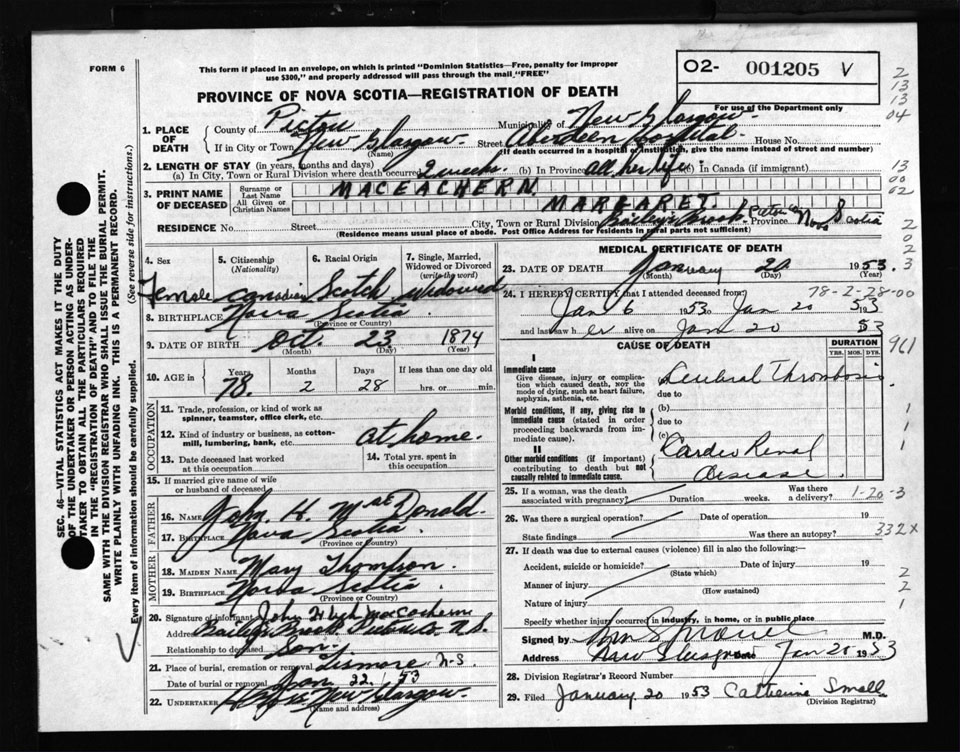 FORM 6
This form if placed in an envelope, on which is printed "Dominion Statistics—Free, penalty for improper
use $300," and properly addressed will pass through the mail "FREE"
O2- 001205 V
PROVINCE OF NOVA SCOTIA—REGISTRATION OF DEATH
For use of the Department only
2
13
13
04
1. PLACE OF DEATH
County of Pictou Municipality of New Glasgow
If in City or Town New Glasgow (Name) Street Aberdeen Hospital House No.
(If death occurred in a hospital or institution, give the name instead of street and number)
2. LENGTH OF STAY (in years, months and days)
(a) In City, Town or Rural Division where death occurred 2 weeks (b) In Province All her life (c) In Canada (if immigrant)
13
00
02
3. PRINT NAME OF DECEASED
Surname or Last Name MACEACHERN
All Given or Christian Names MARGARET
RESIDENCE No. Street City, Town or Rural Division Bailey's Brook Pictou Co Province Nova Scotia
(Residence means usual place of abode. Post Office Address for residents in rural parts not sufficient)
2
0
2
3
4. Sex Female
5. Citizenship (Nationality) Canadian
6. Racial Origin Scotch
7. Single, Married, Widowed or Divorced (write the word) Widowed
8. BIRTHPLACE Nova Scotia
(Province or Country)
9. DATE OF BIRTH Oct. 23 1874
(Month) (Day) (Year)
10. AGE in Years 78 Months 2 Days 28 If less than one day old hrs. or min.
OCCUPATION
11. Trade, profession, or kind of work as spinner, teamster, office clerk, etc.
12. Kind of industry or business, as cotton-mill, lumbering, bank, etc. at home.
13. Date deceased last worked at this occupation
14. Total yrs. spent in this occupation
15. If married give name of wife or husband of deceased
FATHER
16. Name John H. McDonald.
17. Birthplace Nova Scotia
(Province or Country)
MOTHER
18. MAIDEN NAME Mary Thompson
19. BIRTHPLACE Nova Scotia
(Province or Country)
20. Signature of informant John Hugh MacEachern
Address Baileys Brook Pictou Co N.S.
Relationship to deceased Son.
21. Place of burial, cremation or removal Lismore N-S
Date of burial or removal Jan 22. 53
22. UNDERTAKER New Glasgow.
(Name and address)
MEDICAL CERTIFICATE OF DEATH
23. DATE OF DEATH January 20 1953.
(Month) (Day) (Year)
24. I HEREBY CERTIFY that I attended deceased from: 78-2-28-00
Jan 6 1953 to Jan 20 1953
and last saw h er alive on Jan 20 1953
CAUSE OF DEATH
DURATION
YRS. MOS. DYS.
961
I
Immediate cause
Give disease, injury or complication which caused death, NOT the mode of dying, such as heart failure, asphyxia, asthenia, etc.
Cerebral Thrombosis
due to
Morbid conditions, if any, giving rise to immediate cause (stated in order proceeding backwards from immediate cause).
(b)
due to
(c)
II
Other morbid conditions (if important) contributing to death but not causally related to immediate cause.
Cardio Renal
Disease
1
1
1
25. If a woman, was the death associated with pregnancy? Duration weeks. Was there a delivery? 1-20-3
26. Was there a surgical operation? Date of operation 19
State findings Was there an autopsy? 332X
27. If death was due to external causes (violence) fill in also the following:—
Accident, suicide or homicide? Date of injury 19
(State which)
Manner of injury
(How sustained)
Nature of injury
2
2
1
Specify whether injury occurred in industry, in home, or in public place
Signed by Wm Sproull M.D.
Address New Glasgow Jan 20 1953
28. Division Registrar's Record Number
29. Filed January 20 1953 Catherine Small
(Division Registrar)
SEC. 46—VITAL STATISTICS ACT MAKES IT THE DUTY
OF THE UNDERTAKER OR PERSON ACTING AS UNDERTAKER TO OBTAIN ALL THE PARTICULARS REQUIRED
IN THE "REGISTRATION OF DEATH" AND TO FILE THE
SAME WITH THE DIVISION REGISTRAR WHO SHALL ISSUE THE BURIAL PERMIT.
WRITE PLAINLY WITH UNFADING INK. THIS IS A PERMANENT RECORD.
Every item of information should be carefully supplied. (See reverse side for instructions.)